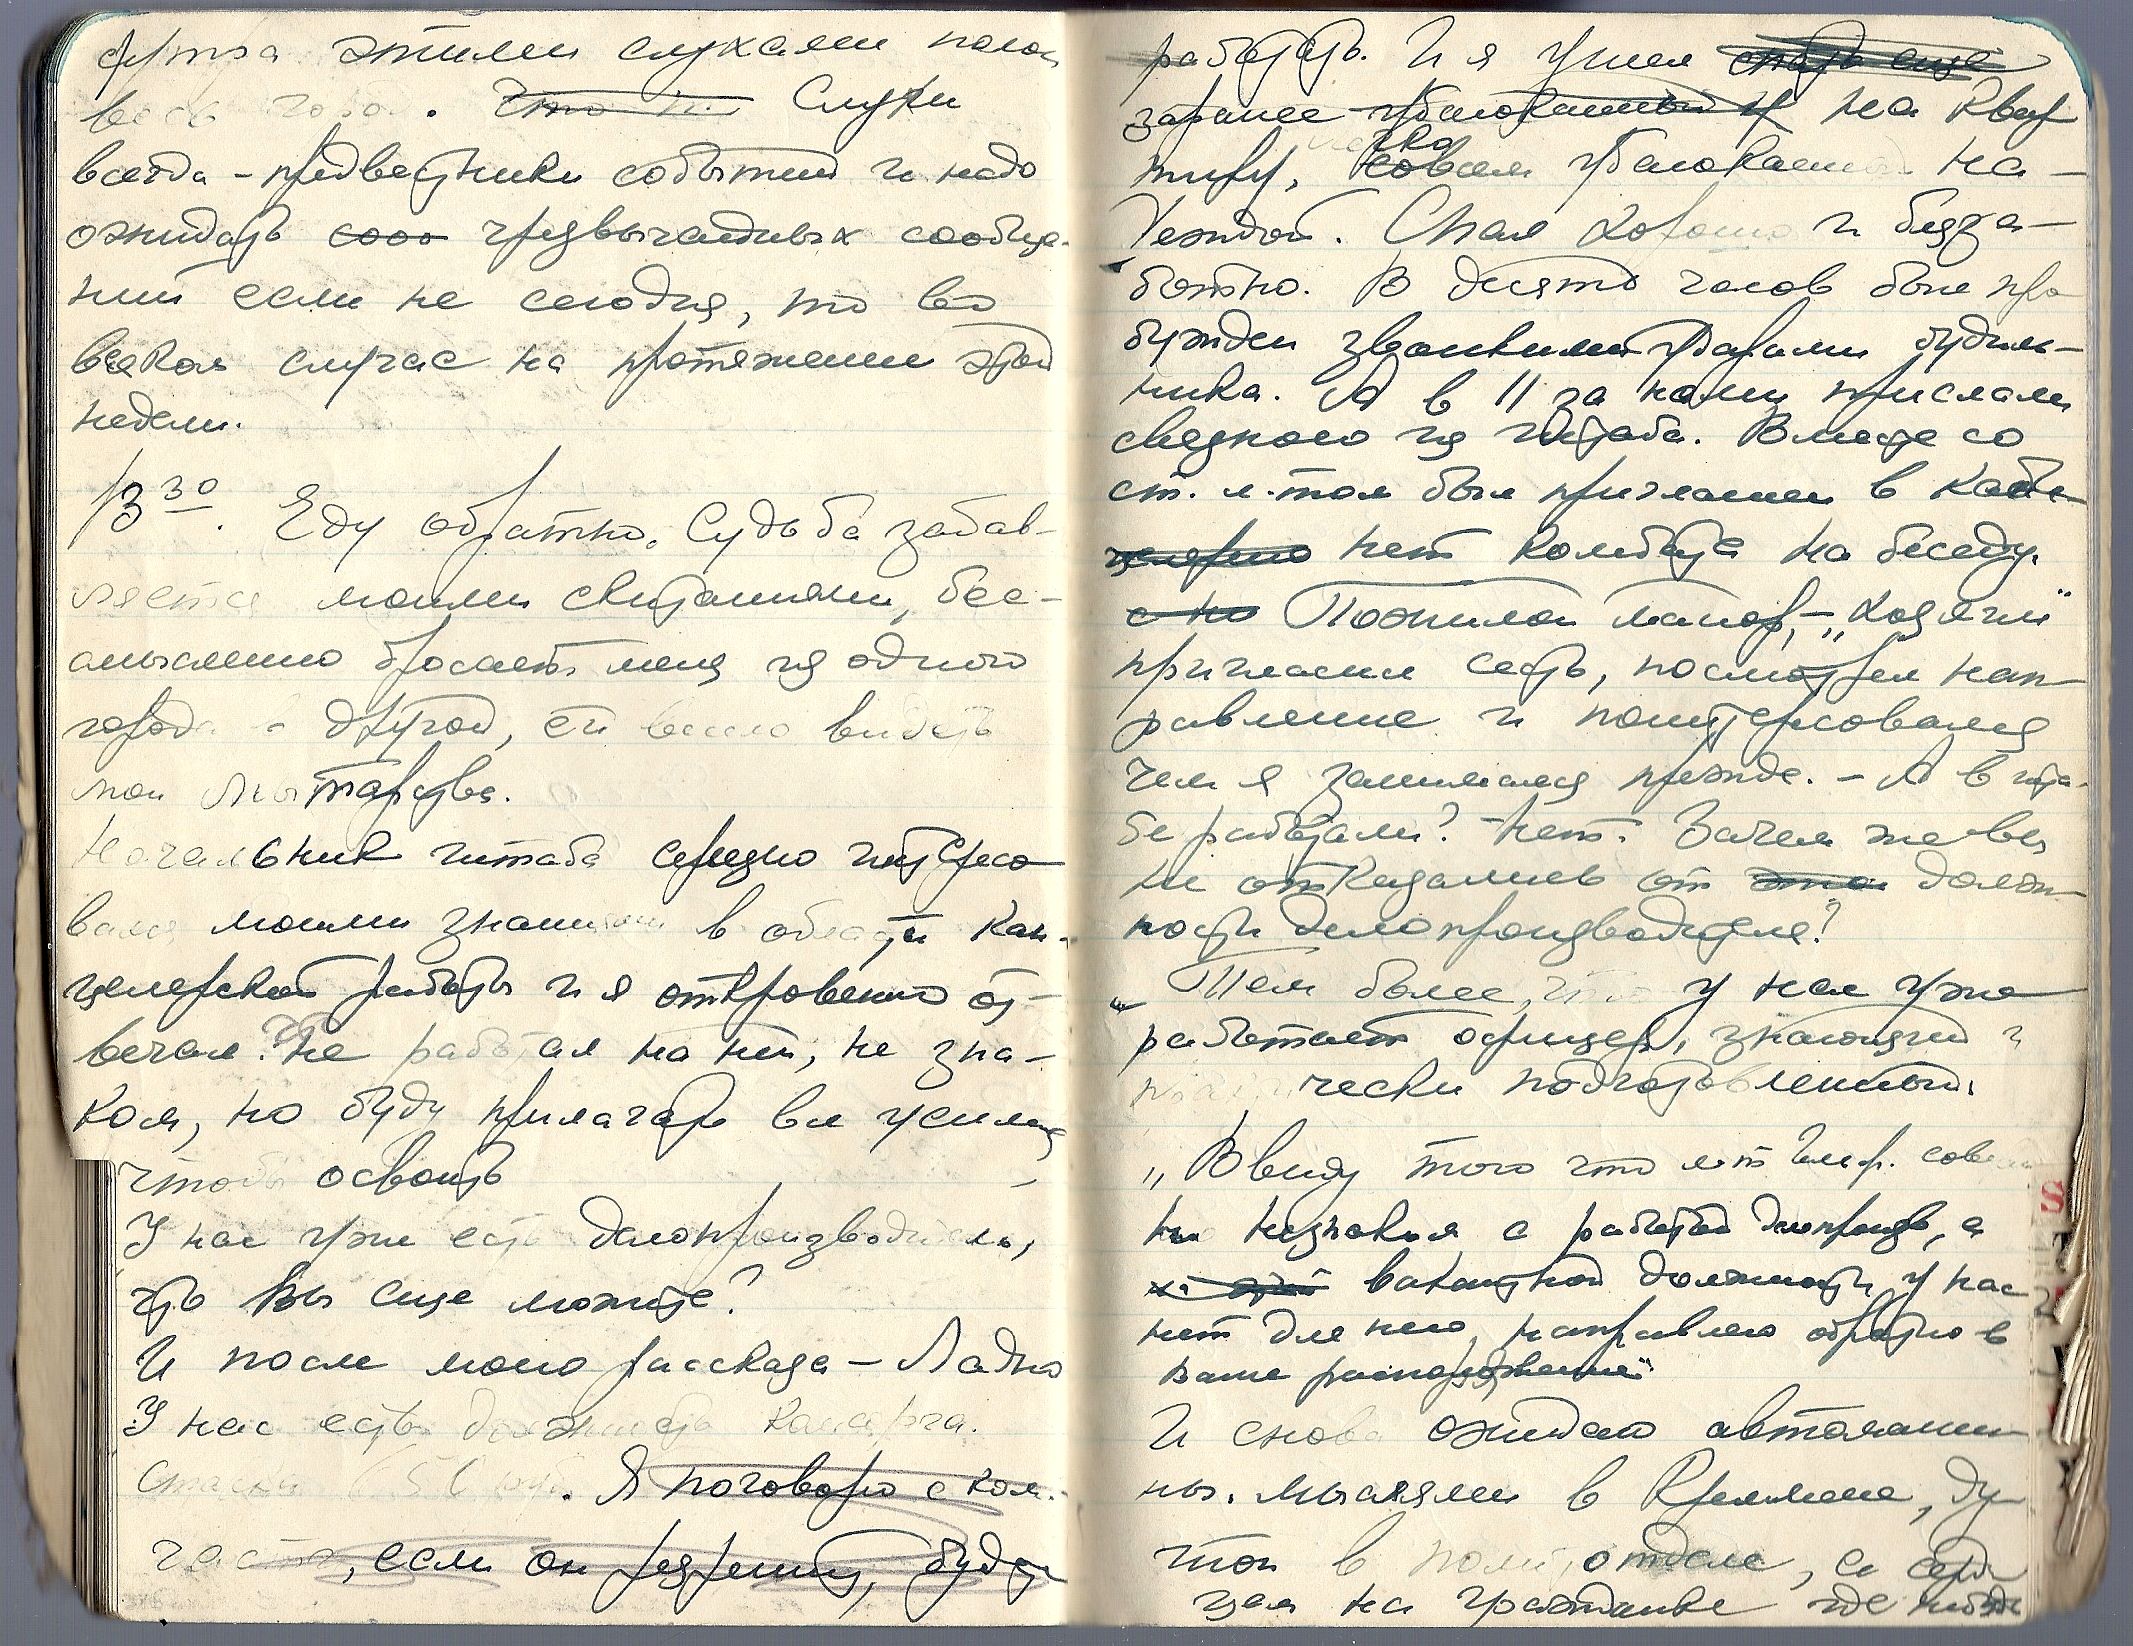 этими слухами полон
весь город. Слухи
всегда - предвестники событий и надо
ожидать сооб чрезвычайных сообще-
ний если не сегодня, то во
всяком случае на протяжении этой
недели.
13 30. Еду обратно. Судьба забав-
ляется моими скитаниями, бес-
смысленно бросает меня из одного
города в другой, ей весело видеть
мои мытарства.
Начальник штаба серьезно интересо
вался моими знаниями в области кан-
целярской работы и я откровенно от-
вечал: Не работал на ней, не зна-
ком, но буду прилагать все усилия
чтобы освоить
У нас уже есть делопроизводитель,
что Вы еще можете?
И после моего рассказа - Ладно
У нас есть должность
Ставка 650 руб. Я поговорю с ком.
части, если он разрешит, будете
работать. И я ушел спать еще
заранее убаюканный и на квар
тиру, убаюканный на-
деждой. Спал хорошо и безза-
ботно. В десять часов был про
бужден звонкими ударами будиль-
ника. А в 11 за нами прислали
связного из штаба. Вместе со
ст. л-том был приглашен в каби
нет комбата на беседу.
Пожилой майор, - "хозяин"
пригласил сесть, посмотрел нап
равление и поинтересовался
чем я занимался прежде. - А в шта-
бе работали? - Нет. Зачем же вы
не отказались от этой долж-
ности делопроизводителя?
"Тем более, что у нас уже
работает офицер, знающий и
практически подготовленный.
"Ввиду того что л-т Гельф. совершен
но незнаком с работой делопроизв, а
вакантной должности у нас
нет для него, направляю обратно в
Ваше распоряжение"
И снова ожидаю автомаши
ны. Мыслями в Кремле, ду
шой в политотделе, а серд
цем на гражданке где нибудь